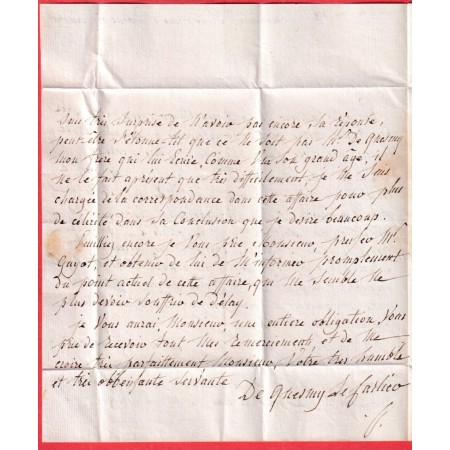 Suis très Surprise de n'avoir pas encore, sa réponse,
peut-être s'étonne-t-il que ce ne soit pas Mr De Quesmy
mon frère qui lui écrive, Comme Vu son grand âge, il
ne le fait apresent que très difficilement, je me suis
chargée de la correspondance dans cette affaire pour plus
de célérité dans sa Conclusion que je desire beaucoup.
Veuillez encore je Vous prie Monsieur, presser Mr
Guyot, et obtenir de lui de m'informer promptement
du point actuel de cette affaire, qui me Semble ne
plus devoir souffrir de délay.
je Vous aurai, Monsieur, une entiere obligation, Vous
prie de recevoir tout mes Remerciements, et de me
croire très parfaittement Monsieur, Votre très humble
et très obbeissante Servante
De Quesmy de